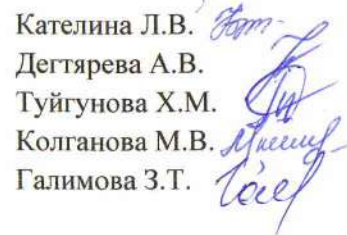 Кателина Л.В.
Дегтярева А.В.
Туйгунова Х.М.
Колганова М.В.
Галимова З.Т.